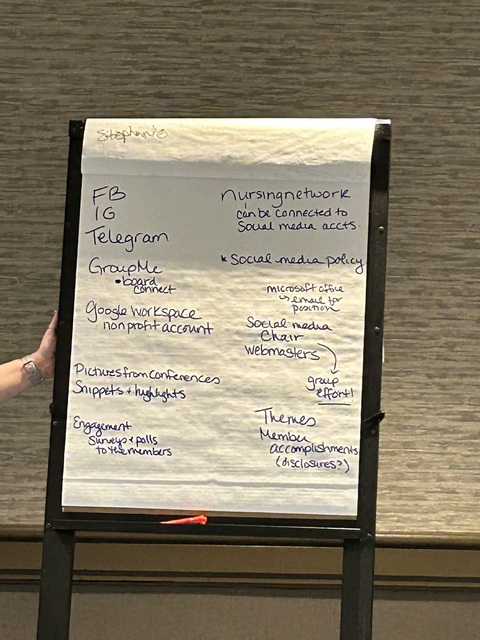 Stephanie
FB
IG
Telegram
GroupMe
•board
connect
Google Workspace
nonprofit account
Pictures from conferences
Snippets + highlights
Engagement
Surveys + polls
to the members
nursingnetwork
can be connected to
Social media accts.
* Social media policy
microsoft office
↳ email for
position
Social media
Chair
webmasters
group
effort!
Themes
Member
accomplishments
(disclosures?)